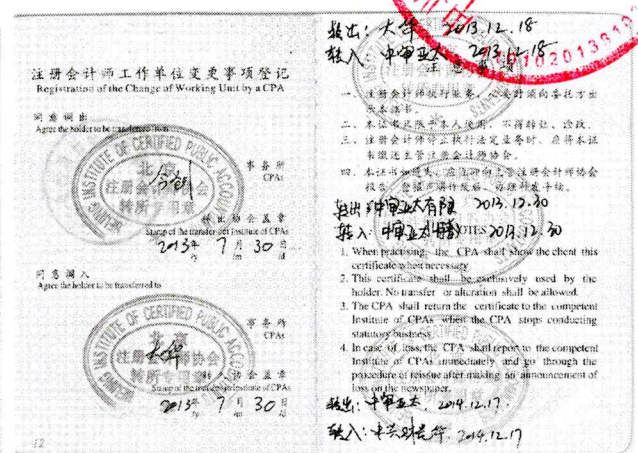 注册会计师工作单位变更事项登记
Registration of the Change of Working Unit by a CPA
同意调出
Agree the holder to be transferred from
事务所
CPAs
BEIJING INSTITUTE OF CERTIFIED PUBLIC ACCOUNTANTS
北京
注册会计师协会
转所专用章
转出协会盖章
Stamp of the transfer-out Institute of CPAs
2013年 7月 30日
同意调入
Agree the holder to be transferred to
事务所
CPAs
BEIJING INSTITUTE OF CERTIFIED PUBLIC ACCOUNTANTS
北京
大华
注册会计师协会
转所专用章
转入协会盖章
Stamp of the transfer-in Institute of CPAs
2013年 7月 30日
12
转出: 大华 2013.12.18
转入 中审亚太 2013.12.18
注意事项
一、注册会计师执行业务,必要时须向委托方出
示本证书。
二、本证书只限于本人使用,不得转让、涂改。
三、注册会计师停止执行法定业务时,应将本证
书缴还主管注册会计师协会。
四、本证书如遗失,应立即向主管注册会计师协会
报告,登报声明作废后,办理补发手续。
转出:中审亚太有限 2013.12.30
转入: 中审亚太 2013.12.30
NOTES
1. When practising, the CPA shall show the client this
certificate when necessary.
2. This certificate shall be exclusively used by the
holder. No transfer or alteration shall be allowed.
3. The CPA shall return the certificate to the competent
Institute of CPAs when the CPA stops conducting
statutory business.
4. In case of loss, the CPA shall report to the competent
Institute of CPAs immediately and go through the
procedure of reissue after making an announcement of
loss on the newspaper.
转出: 中审亚太. 2014.12.17.
转入: 中兴财光华. 2014.12.17